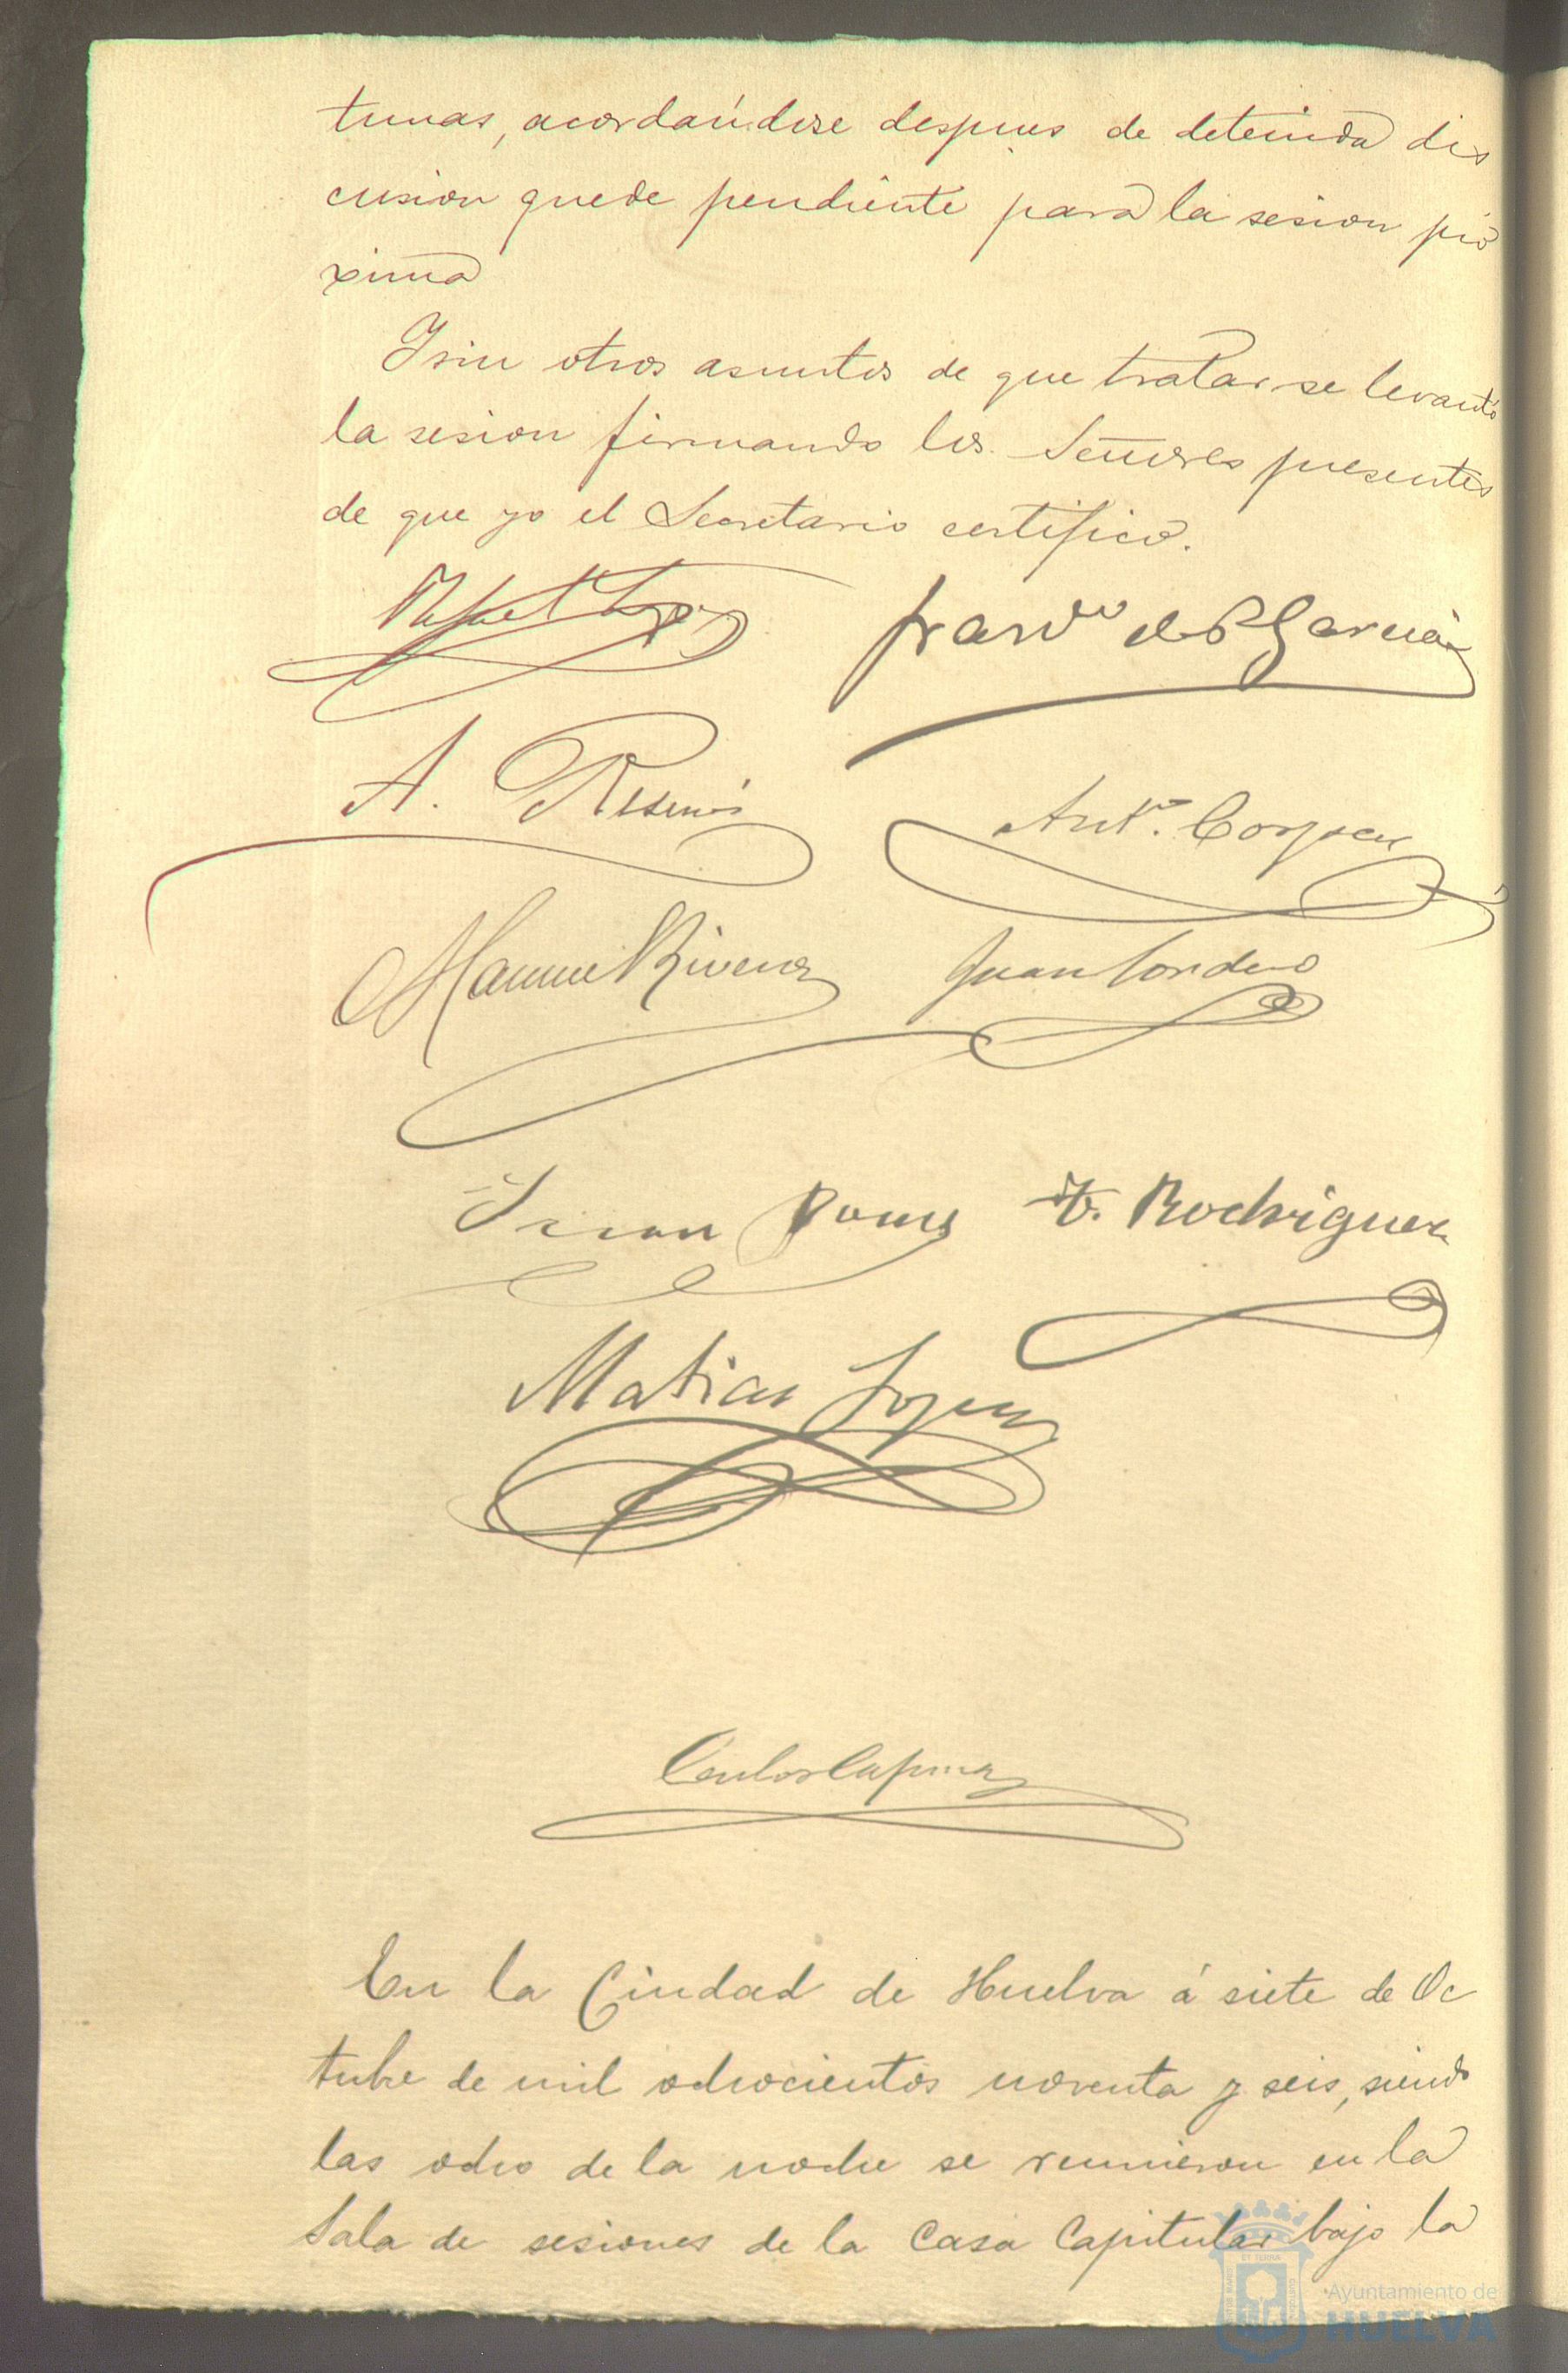 tunas, acordándose despues de detenida dis
cusion quede pendiente para la sesion pró
xima
Y sin otros asuntos de que tratar se levantó
la sesion firmando los Señores presentes
de que yo el Secretario certifico.
Rafael Lopez Franco de P Garcia
A.
Anto.
Manuel Rivera Juan Cordero
Juan F. Rodriguez
Matias Lopez
Carlos
En la Ciudad de Huelva á siete de Oc
tubre de mil ochocientos noventa y seis, siendo
las ocho de la noche se reunieron en la
Sala de sesiones de la Casa Capitular bajo la
Ayuntamiento de
HUELVA